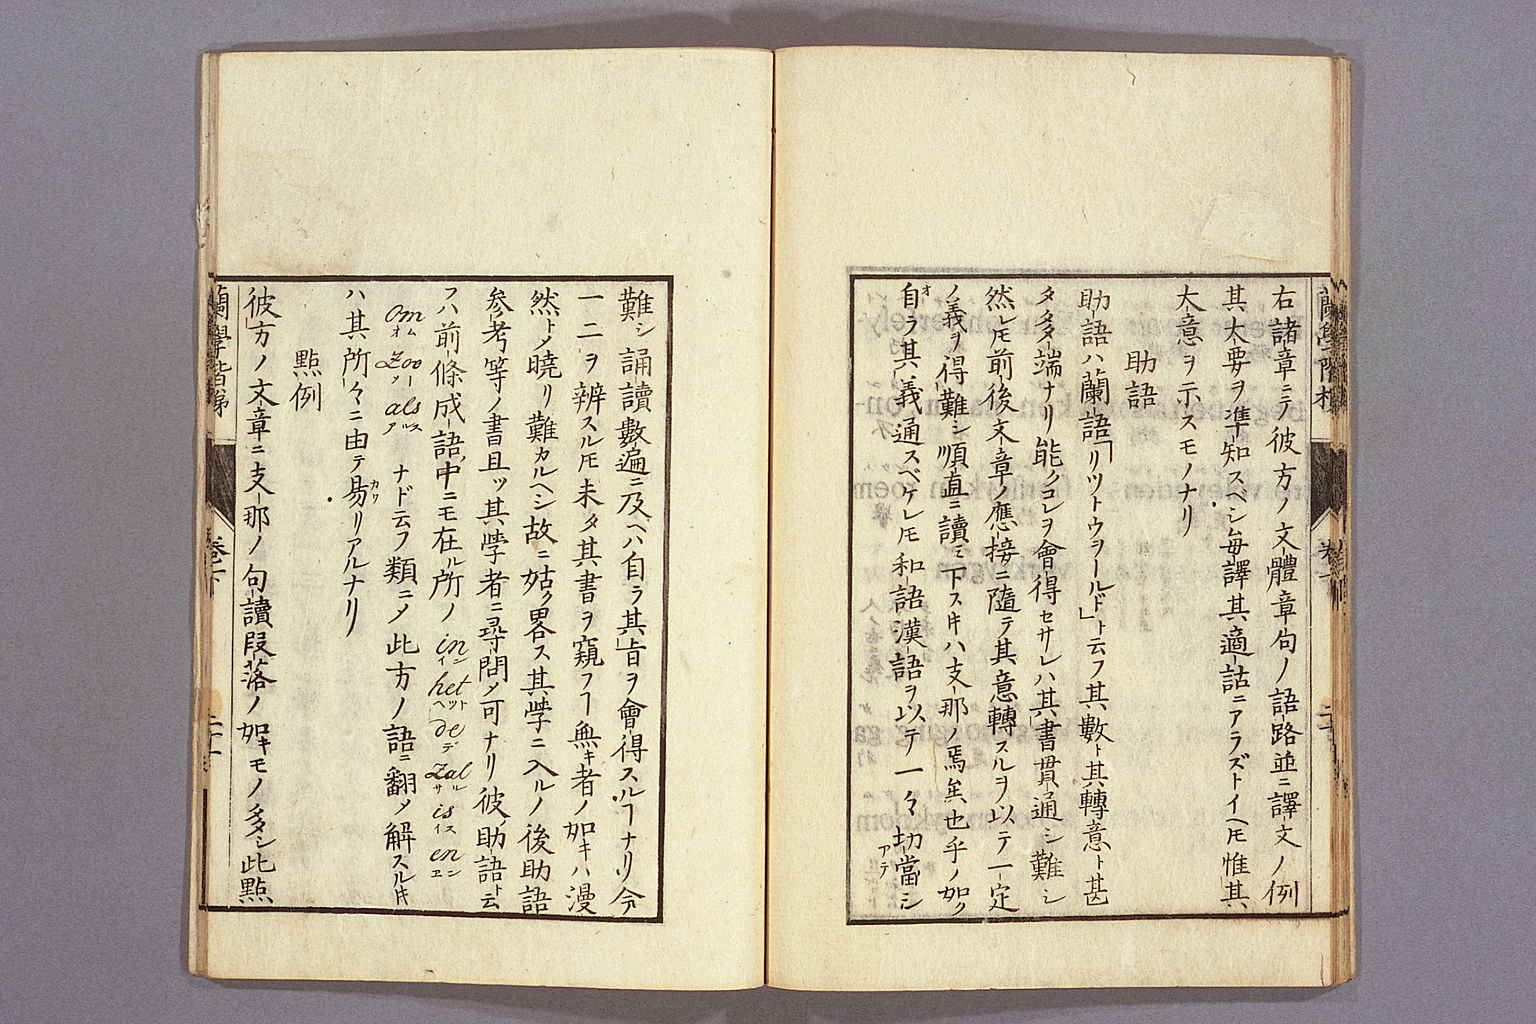 右諸章ニテ彼方ノ文體章句ノ語路並ニ譯文ノ例
其大要ヲ準知スベシ毎譯其適詁ニアラズトイヘ𪜈惟其
大意ヲ示スモノナリ
助語
助語ハ蘭語「リツトウヲールド」ト云フ其數ト其轉意ト甚
タ多端ナリ能クコレヲ會得セサレハ其書貫通シ難シ
然レ𪜈前後文章ノ應接ニ隨テ其意轉スルヲ以テ一定
ノ義ヲ得難シ順直ニ讀ミ下スキハ支那ノ焉矣也乎ノ如ク
自ラ其義通スベケレ𪜈和語漢語ヲ以テ一々切當シ
難シ誦讀數遍ニ及ヘハ自ラ其旨ヲ會得スルヿナリ今
一二ヲ辨スル𪜈未タ其書ヲ窺フヿ無キ者ノ如キハ漫
然トメ曉リ難カルヘシ故ニ姑ク畧ス其學ニ入ルノ後助語
参考等ノ書且ツ其學者ニ尋問メ可ナリ彼助語ト云
フハ前條成語中ニモ在ル所ノ in het de zal is en
イン ヘット デ サル イス エン
om zoo als ナド云フ類ニメ此方ノ語ニ翻メ解スルキ
オム ソー アルス
ハ其所々ニ由テ易リアルナリ
點例
彼方ノ文章ニ支那ノ句讀段落ノ如キモノ多シ此點
蘭學階梯 卷下